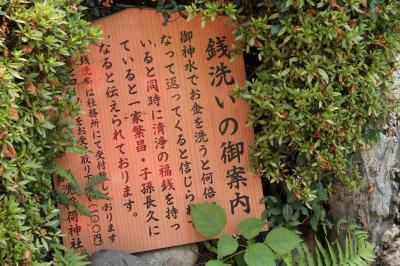 銭洗いの御案内
御神水でお金を洗うと何倍
なって返ってくると信じられ
いると同時に清浄の福銭を持っ
ていると一家繁昌・子孫長久に
なると伝えられております。
銭洗 は社務所にて受付致しております
をお受け取り下 (一〇〇円)
荷神社